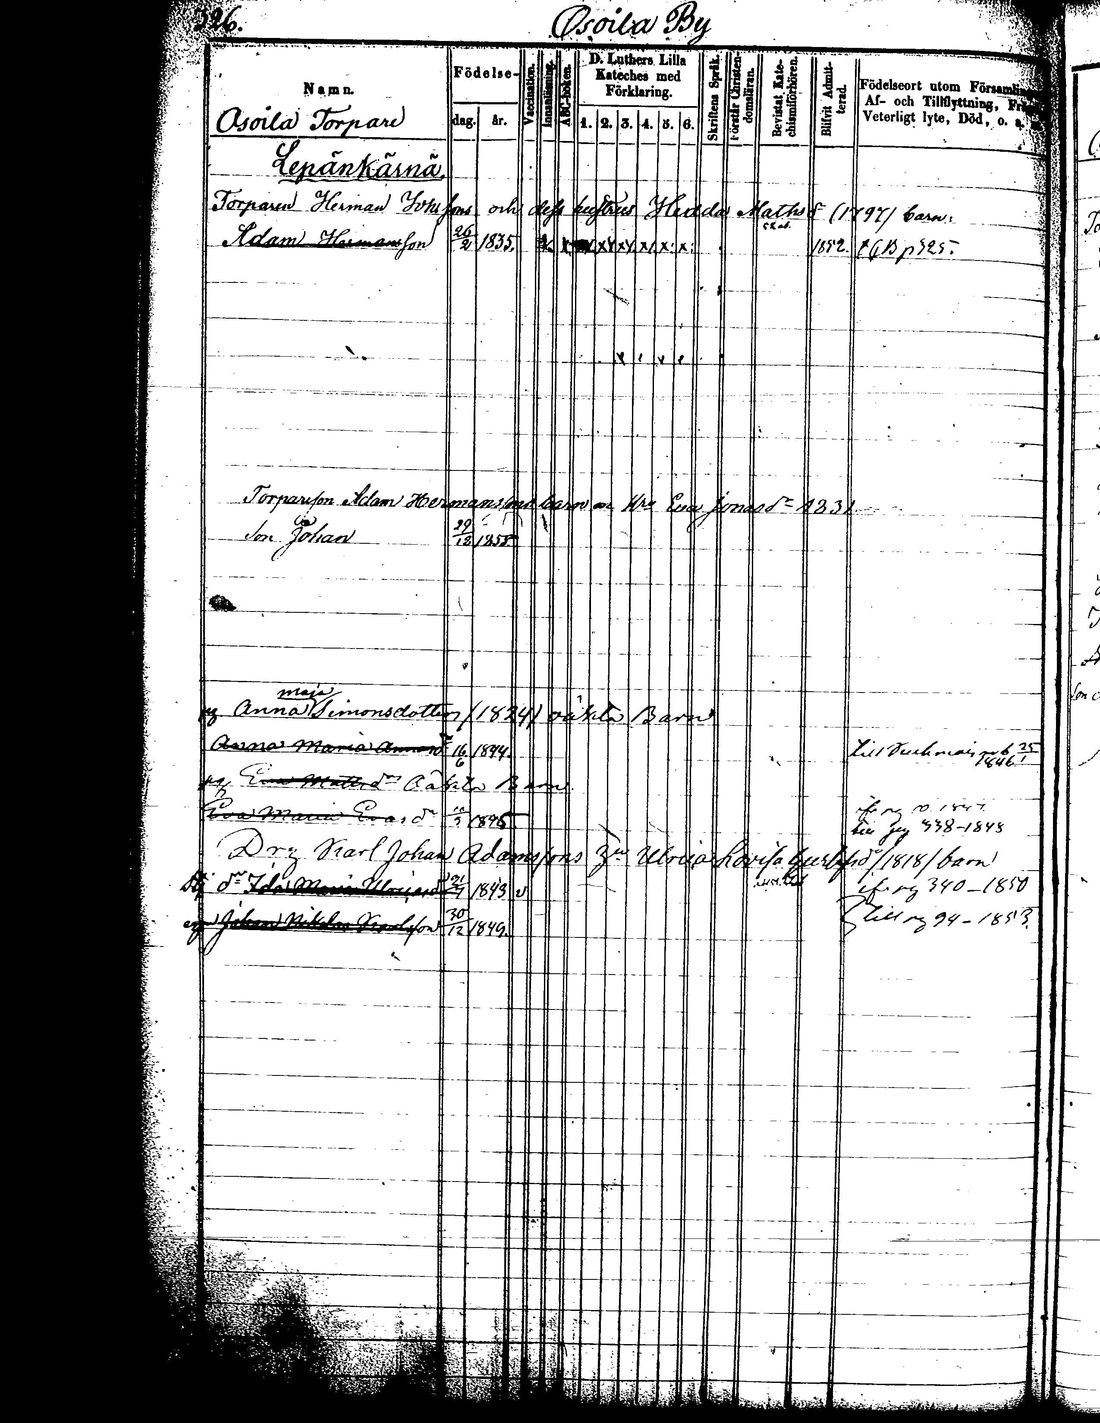 326.
Osoila By
Namn.
Födelse-
dag. år.
Vaccination.
Innanläsning.
ABC-boken.
D. Luthers Lilla Kateches med Förklaring.
1. 2. 3. 4. 5. 6.
Skriftens Språk.
Förstår Christendomsläran.
Bevistat Katechismiförhören.
Blifvit Admitterad.
Födelseort utom Församlin
Af- och Tillflyttning, Fr
Veterligt lyte, Död, o. s.
Osoila Torpare
Lepänkärnä
Torparen Herman Johssons och dess hustrus Hedda Mathsdr (1797) barn:
Adam Hermansson 26/2 1835. x x x x x x 1852. p 325.
Torparson Adam Hermanssons barn m Hru Eva Jonasdr 1831
Son Johan 29/12 1855
maja
pg Anna Simonsdotters (1824) oäkta Barn
Anna Maria Annasdr 16/6 1844. till 25/1 1846
pg Eva Mattsdrs Oäkta Barn
Eva Maria Evasdr 1845
338-1848
Drg Karl Johan Adamssons Ulrica Lovisa Gustfsdr (1818) barn
dr Ida Maria 21/7 1843 v 340-1850
Johan Karlsson 30/12 1849. till pg 94-1853.